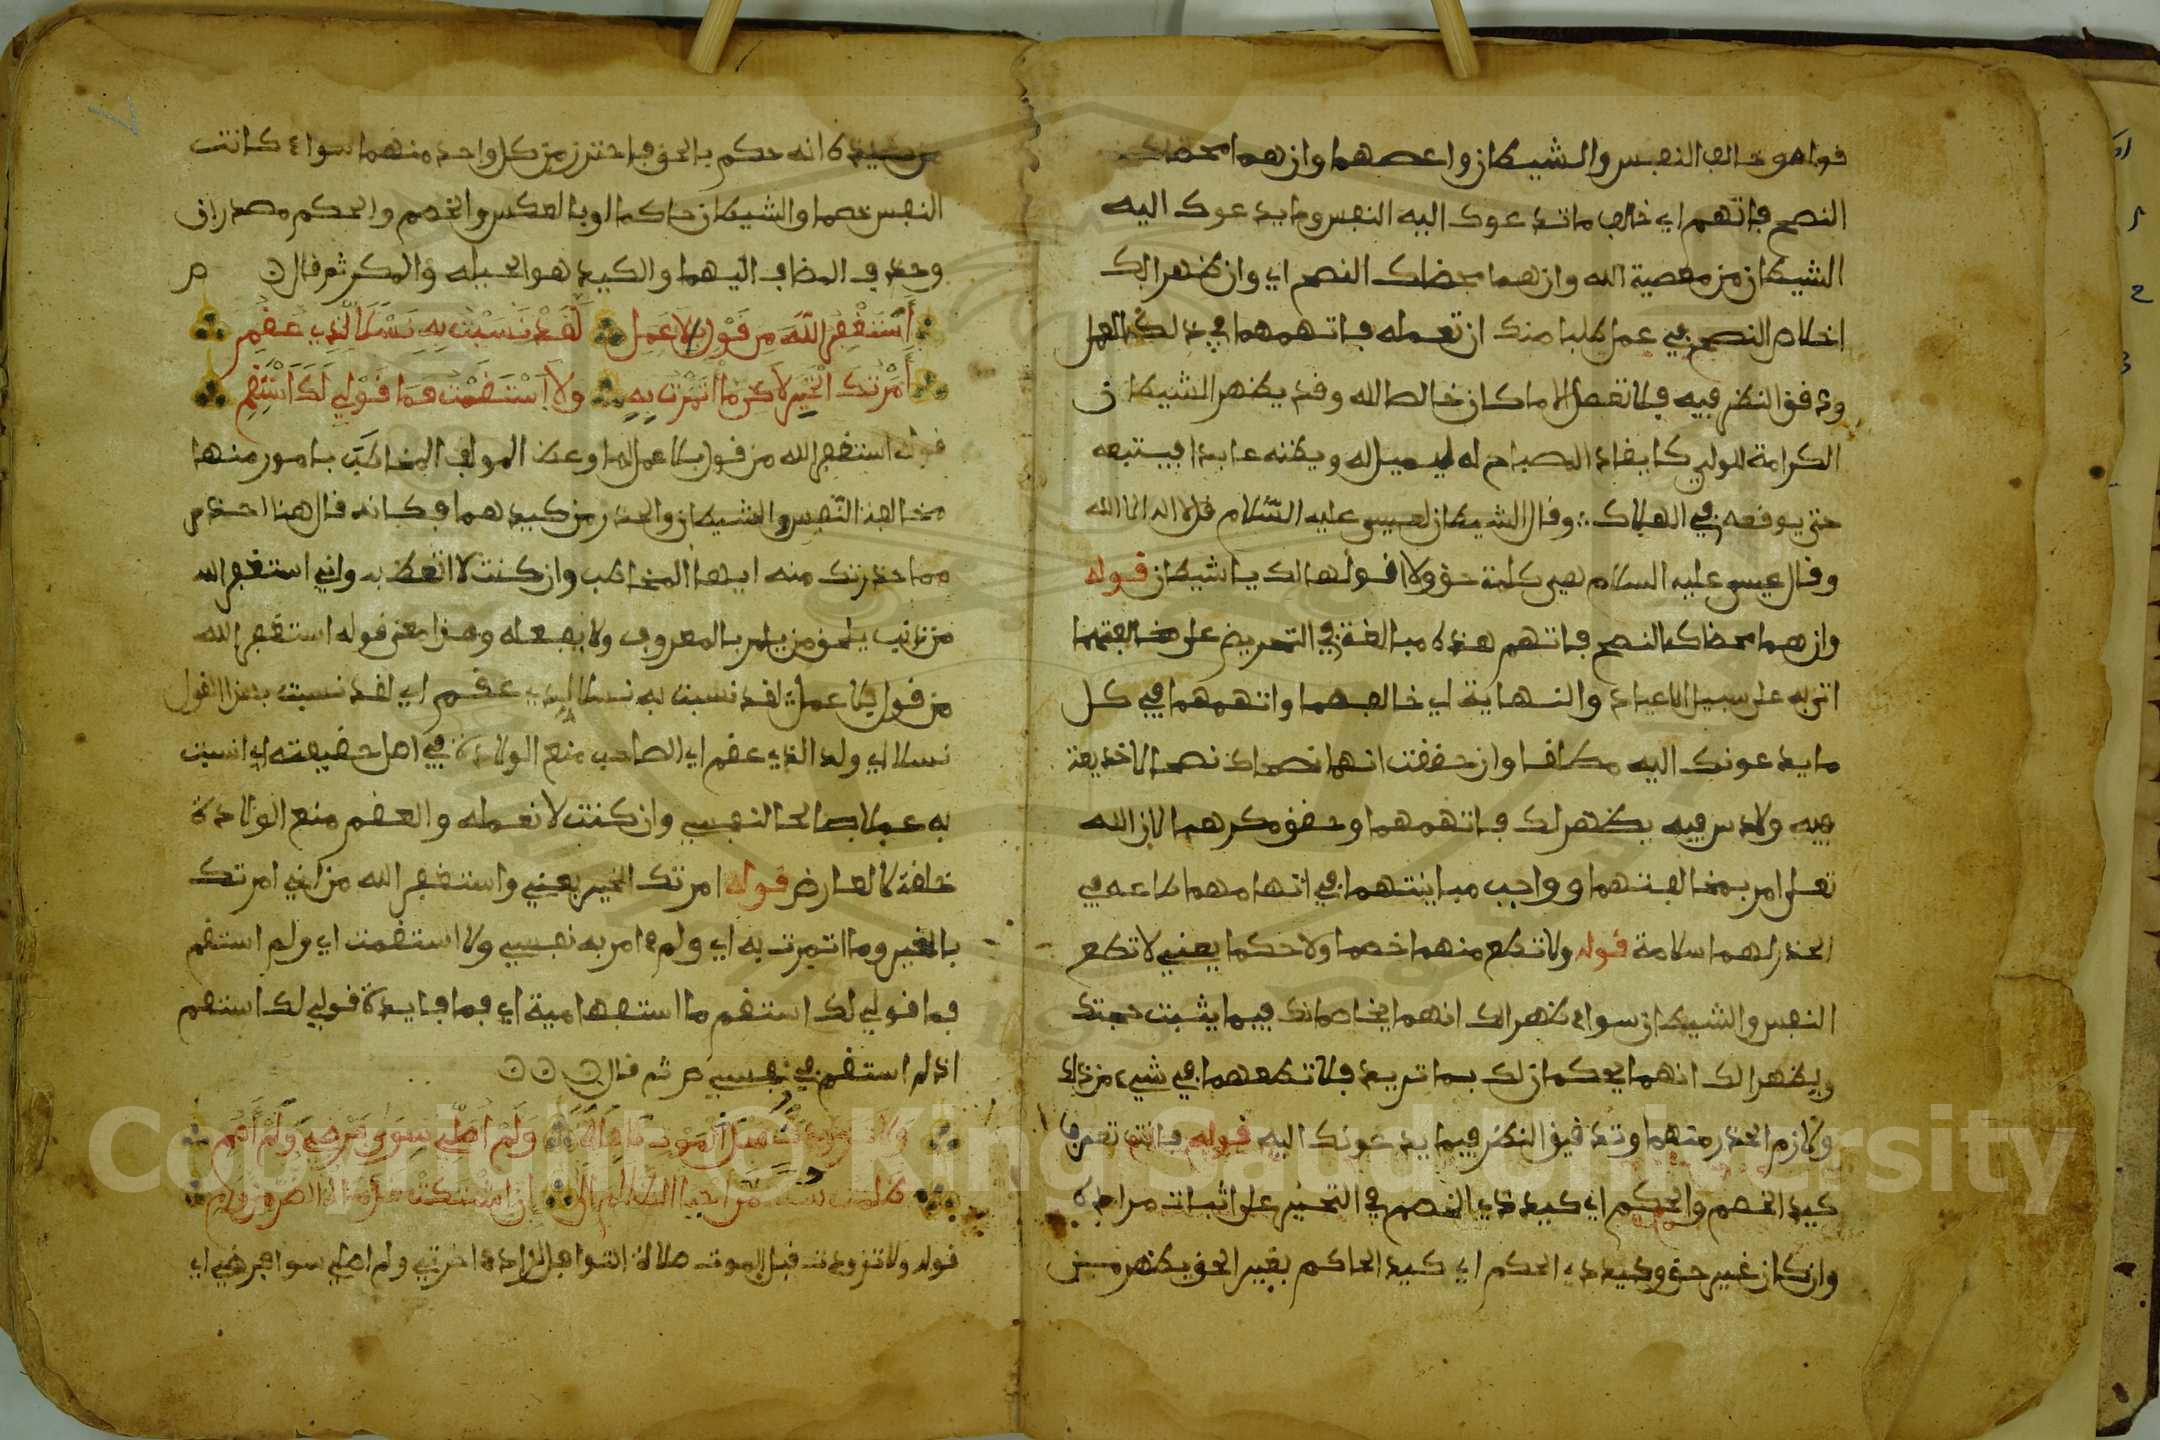 قوله خالف النفس والشيطان واعصهما وان هما محضاك
النصح فاتهم اي خالف ما تدعوك اليه النفس وما يدعوك اليه
الشيطان من معصية الله وان هما محضاك النصح اي وان ظهرا لك
اخلاص النصح في عمل طلبا منك ان تعمله فاتهمهما في ذلك العمل
ودقق النظر فيه فلا تفعل الا ما كان خالصا لله وقد يظهر الشيطان
الكرامة للولي كايقاد المصباح له ليميل له ويظنه عابدا فيستبعه
حتى يوقعه في الهلاك وقال الشيطان لعيسى عليه السلام قل لا اله الا الله
وقال عيسى عليه السلام هي كلمة حق ولا اقولها لك يا شيطان قوله
وان هما محضاك النصح فاتهم هذه مبالغة في التحريض على مخالفتهما
اتى به على سبيل الاعياد والنهاية اي خالفهما واتهمهما في كل
ما يدعونك اليه مطلقا وان حققت انهما نصحاك نصحا لا خديعة
فيه ولا دس فيه يظهر لك فاتهمهما وحقق مكرهما لان الله
تعلى امر بمخالفتهما وواجب مباينتهما في اتهامهما طاعه في
الحذر لهما سلامة قوله ولا تطع منهما خصما ولا حكما يعني لا تطع
النفس والشيطان سواء ظهر لك انهما يخاصمانك فيما يثبت حجتك
ويظهر لك انهما يحكمان لك بما تريد فلا تطعهما في شيء من ذلك
ولازم الحذر منهما وتدقيق النظر فيما يدعونك اليه قوله فانت تعرف
كيد الخصم والحكم اي كيد ذي الخصم في التحيير على اثبات مراده
وان كان غير حق وكيد ذي الحكم اي كيد الحاكم بغير الحق يظهر من
من كيده كانه حكم بالحق فاحترز من كل واحد منهما سواء كانت
النفس خصما والشيطان حاكما او بالعكس والخصم والحكم مصدران
وحذف المضاف اليهما والكيد هو الحيلة والمكر ثم قال ص
أستغفر الله من قول بلا عمل لقد نسبت به نسلا لذي عقم
أمرتك الخير لاكن ما ائتمرت به ولا استقمت فما قولي لك استقم
قوله استغفر الله من قول بلا عمل لما وعظ المولف المخاطب بامور منها
مخالفة النفس والشيطان والحذر من كيدهما فكانه قال هنا احذر
مما حذرتك منه ايها المخاطب وان كنت لا اتعظ به واني استغفر الله
من ذنب يلحق من يامر بالمعروف ولا يفعله وهذا معنى قوله استغفر الله
من قول بلا عمل لقد نسبت به نسلا لذي عقم اي لقد نسبت بهذا القول
نسلا اي ولد الذي عقم اي الصاحب منع الولادة في اصل حقيقته اي انسبت
به عملا صالحا لنفسي وان كنت لا نعمله والعقم منع الولادة
خلقة كالعارض قوله امرتك الخير يعني واستغفر الله من اني امرتك
بالخير وما ائتمرت به اي ولم امر به نفسي ولا استقمت اي ولم استقم
فما قولي لك استقم ما استفهامية اي فما فايدة قولي لك استقم
اذ لم استقم في نفسي ص ثم قال
ولا تزودت قبل الموت نافلة ولم أصلي سوى فرض ولم أصم
ظلمت سنة من احيا الظلام الى ان اشتكت قدماه الضر من ورم
قوله ولا تزودت قبل الموت صلاة النوافل لزاده اخرتي ولم اصلي سوى فرضي اي